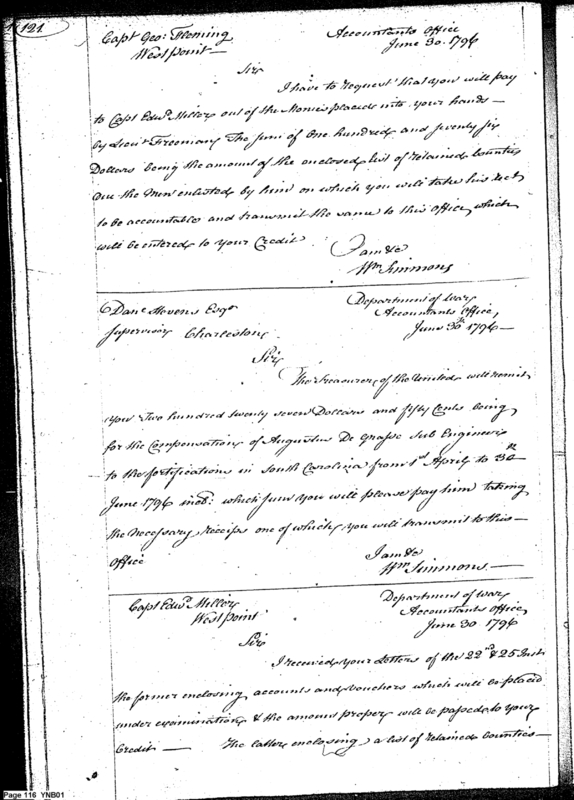 121
Capt Geo: Fleming
West point —
Accountants Office
June 30. 1796
Sir
I have to request that you will pay
to Capt Edwd. Miller out of the Monies placed into your hands —
by Lieut Freeman The sum of One hundred and seventy six
Dollars being the amount of the enclosed list of retained bounties
due the Men enlisted by him on which you will take his rect
to be accountable and transmit the same to this Office, which
will be entered to your Credit
I am &c
Wm Simmons
Danl Stevens Esqr
Supervisor Charleston
Department of War
Accountants Office,
June 30th 1796 —
Sir
The Treasurer of the United will remit
you Two hundred twenty seven Dollars and fifty Cents being
for the Compensation of Augustus De Grasse Sub Engineer
to the fortifications in South Carolina from 1st April to 30th
June 1796 incl: which sum you will please pay him taking
the necessary receipts one of which you will transmit to this —
Office
I am &c
Wm Simmons —
Capt Edwd Miller
West point
Department of War
Accountants Office,
June 30 1796
Sir
I received your Letters of the 22nd & 25 Inst
the former enclosing accounts and Vouchers which will be placed
under examination & the amount proper will be passed to your
Credit — The latter enclosing a list of retained bounties —
Page 116 YNB01